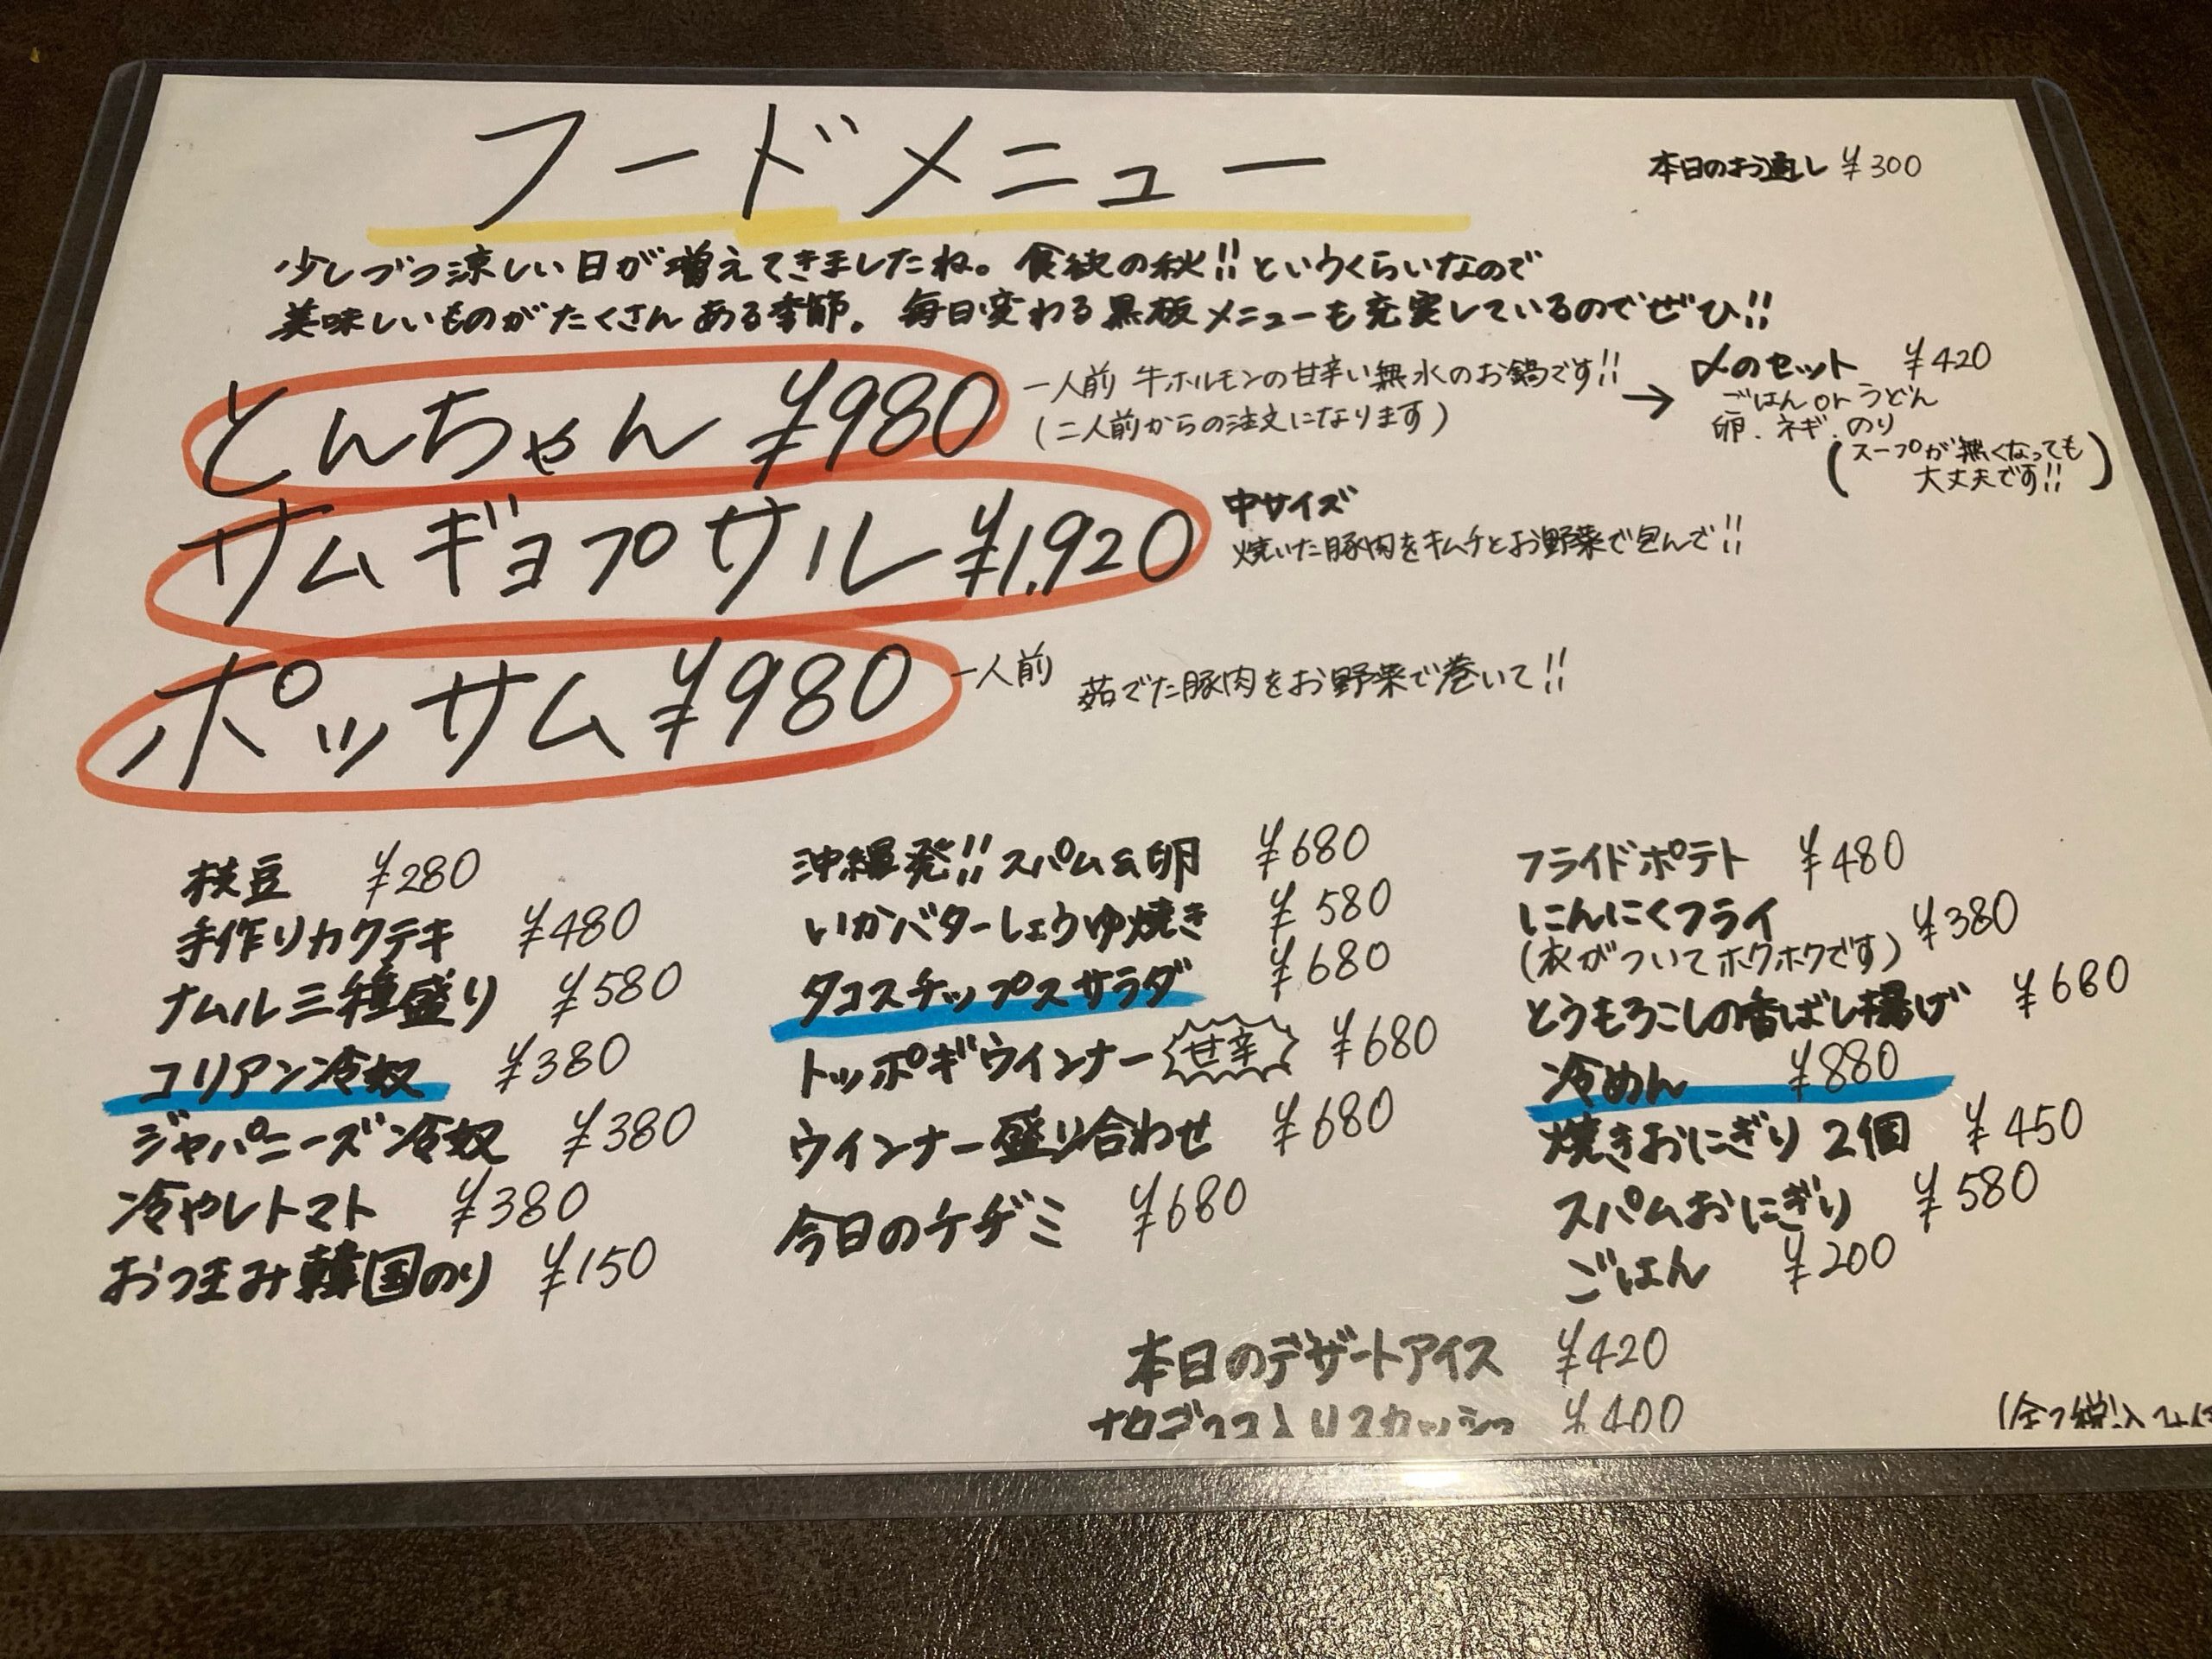 フードメニュー
本日のお通し ¥300
少しづつ涼しい日が増えてきましたね。食欲の秋!!というくらいなので
美味しいものがたくさんある季節。毎日変わる黒板メニューも充実しているのでぜひ!!
とんちゃん ¥980
一人前 牛ホルモンの甘辛い無水のお鍋です!!
(二人前からの注文になります)
→ 〆のセット ¥420
ごはん or うどん
卵.ネギ.のり
(スープが無くなっても
大丈夫です!!)
サムギョプサル ¥1,920
中サイズ
焼いた豚肉をキムチとお野菜で包んで!!
ポッサム ¥980
一人前 茹でた豚肉をお野菜で巻いて!!
枝豆 ¥280
手作りカクテキ ¥480
ナムル三種盛り ¥580
コリアン冷奴 ¥380
ジャパニーズ冷奴 ¥380
冷やしトマト ¥380
おつまみ韓国のり ¥150
沖縄発!!スパム&卵 ¥680
いかバターしょうゆ焼き ¥580
タコスチップスサラダ ¥680
トッポギウインナー 甘辛 ¥680
ウインナー盛り合わせ ¥680
今日のケヂミ ¥680
フライドポテト ¥480
にんにくフライ ¥380
(衣がついてホクホクです)
とうもろこしの香ばし揚げ ¥680
冷めん ¥880
焼きおにぎり 2個 ¥450
スパムおにぎり ¥580
ごはん ¥200
本日のデザートアイス ¥420
¥400